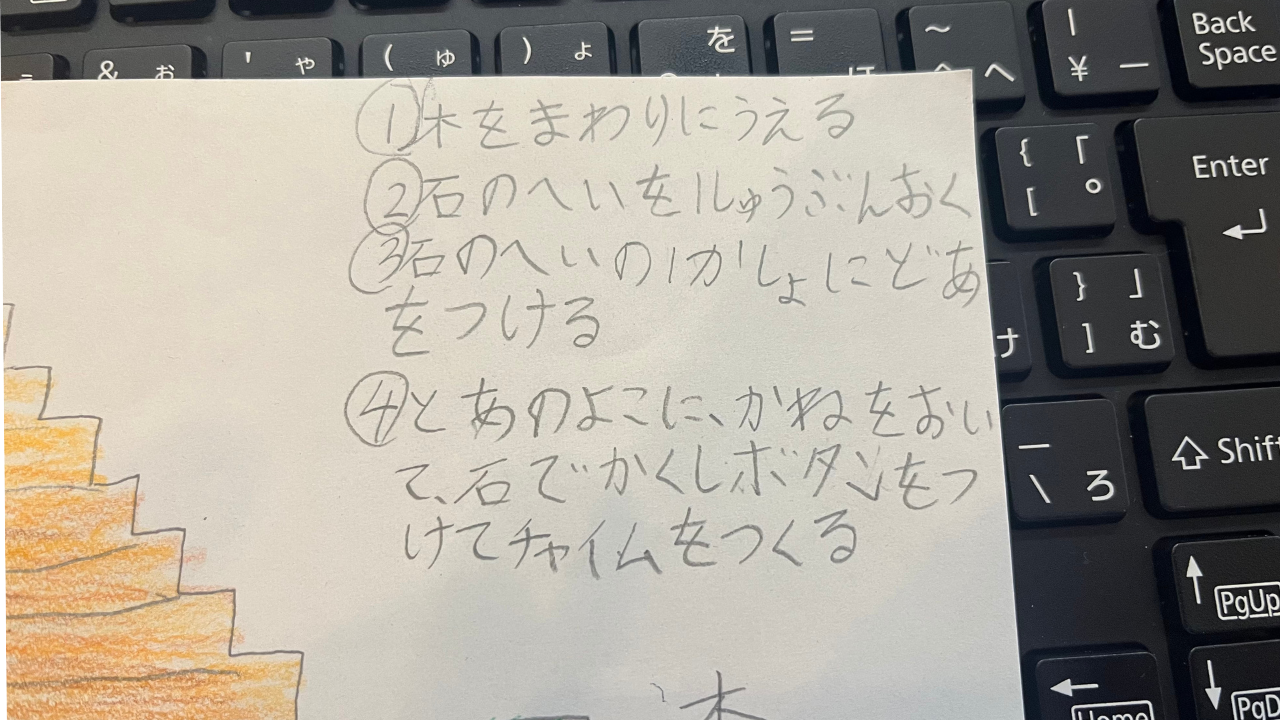 & お
' や
( ゅ
) ょ
を
=
~
へ
|
¥ ー
Back
Space
①木をまわりにうえる
②石のへいを1しゅうぶんおく
③石のへいの1かしょにどあ
をつける
④とあのよこに、かねをおい
て、石でかくしボタンをつ
けてチャイムをつくる
木
{ 「
[ °
Enter
} 」
] む
け
_
\ ろ
Shift
PgUp
Home
PgD